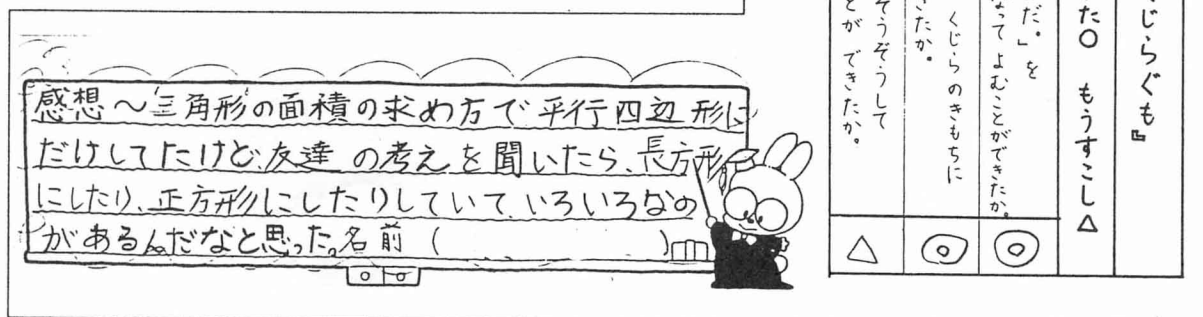 感想～三角形の面積の求め方で平行四辺形に
だけしてたけど、友達の考えを聞いたら、長方形
にしたり、正方形にしたりしていて、いろいろなの
があるんだなと思った。名前（　　　　　）
じらぐも』
た○ もうすこし△
だ。」を
なって よむことができたか。
くじらのきもちに
きたか。
そうぞうして
とが できたか。
◎
◎
△